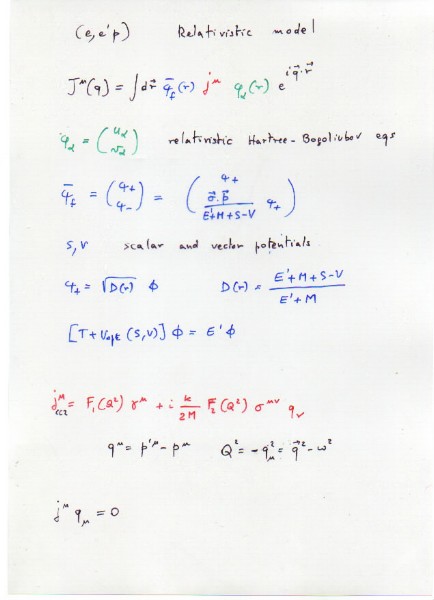 (e, e'p) Relativistic model
J^μ(q) = ∫ d\vec{r} \bar{ψ}_f(r) j^μ ψ_α(r) e^{i\vec{q}·\vec{r}}
ψ_α = (u_α / v_α) relativistic Hartree-Bogoliubov eqs
\bar{ψ}_f = (ψ_+ / ψ_-) = (ψ_+ / \frac{\vec{σ}·\vec{p}}{E'+M+S-V} ψ_+)
S, V scalar and vector potentials.
ψ_+ = √D(r) ϕ D(r) = \frac{E'+M+S-V}{E'+M}
[T + U_{opt}(S,V)] ϕ = E' ϕ
j^μ_{cc2} = F_1(Q²) γ^μ + i \frac{k}{2M} F_2(Q²) σ^{μν} q_ν
q^μ = p'^μ - p^μ Q² = -q_μ² = \vec{q}² - ω²
j^μ q_μ = 0